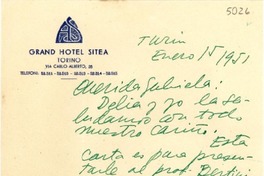 5026
GRAND HOTEL SITEA
TORINO
VIA CARLO ALBERTO, 35
TELEFONI:
Turin
Enero 15 1951
Querida Gabriela:
Delia y yo la sa-
ludamos con todo
nuestro cariño. Esta
carta es para presen-
tarle al prof. Bertini